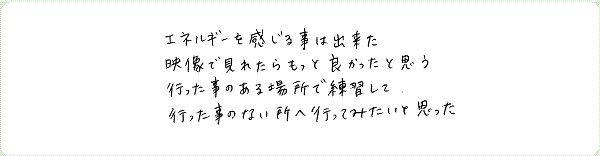 エネルギーを感じる事は出来た
映像で見れたらもっと良かったと思う
行った事のある場所で練習して
行った事のない所へ行ってみたいと思った